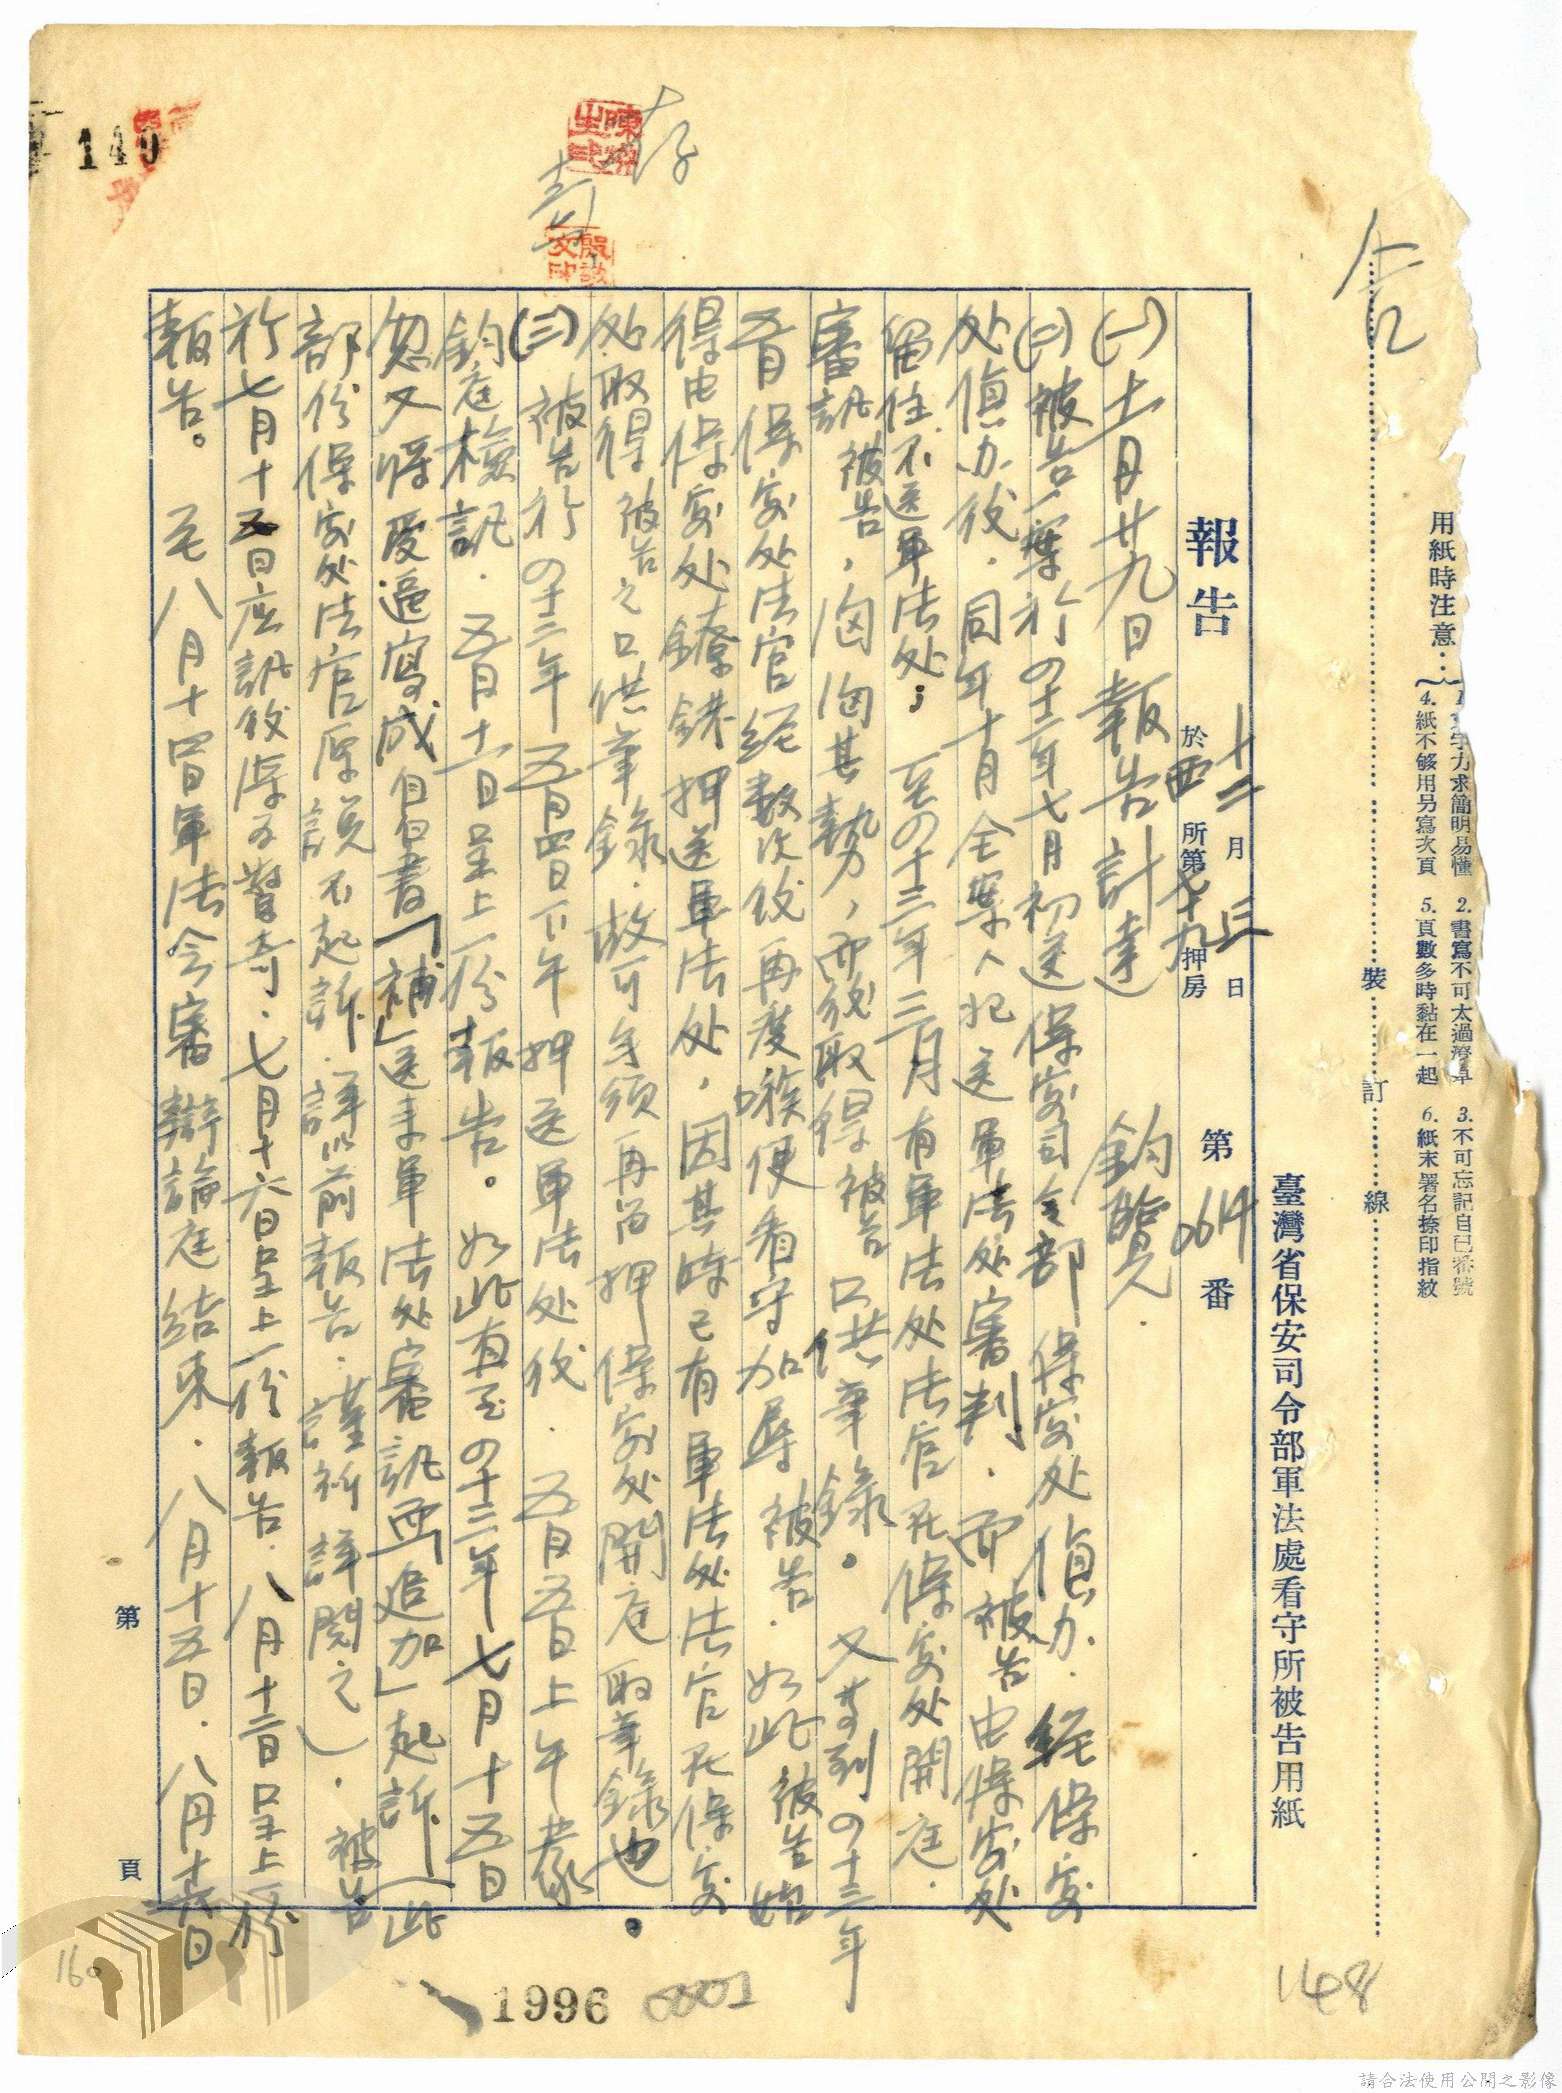 用紙時注意：
文字力求簡明易懂 2.書寫不可太過潦草 3.不可忘記自己番號
4.紙不够用另寫次頁 5.頁數多時黏在一起 6.紙末署名捺印指紋
裝 訂 線
臺灣省保安司令部軍法處看守所被告用紙
報告 十二月三日 第0614番
於西所第七十九押房
(一)十一月廿九日報告計達 鈞覽．
(二)被告等於四十二年七月初送保安司令部保安处偵办．經保安
处偵办後．同年十月全案人犯送軍法处審判．而被告由保安处
留住不送軍法处；至四十三年二月有軍法处法官死保安处開庭．
審訊被告，洶洶其勢，而後取得被告口供筆錄。又等到四十三年
五月保安处法官經数次後再度嗾使看守加辱被告．如此被告始
得由保安处鐐銬押送軍法处，因其時已有軍法处法官死保安
处取得被告之口供筆錄．故可毋須再留押保安处開庭取筆錄也。
(三)被告於四十三年五月四日下午押送軍法处後．五月五日上午蒙
鈞庭檢訊．五月十一日呈上一份報告。如此直至四十三年七月十五日
忽又將受逼寫成自白書「補」送來軍法处審訊而「追加」起訴（此
部份保安处法官原說不起訴．詳以前報告．謹祈詳閱之）．被告
於七月十五日庭訊後深為驚奇．七月十六日呈上一份報告．八月十二日呈上一份
報告。至八月十四日軍法会審辯論庭結束．八月十五日．八月十六日
第 頁
存
陳
之印
149
148
160
1996
請合法使用公開之影像